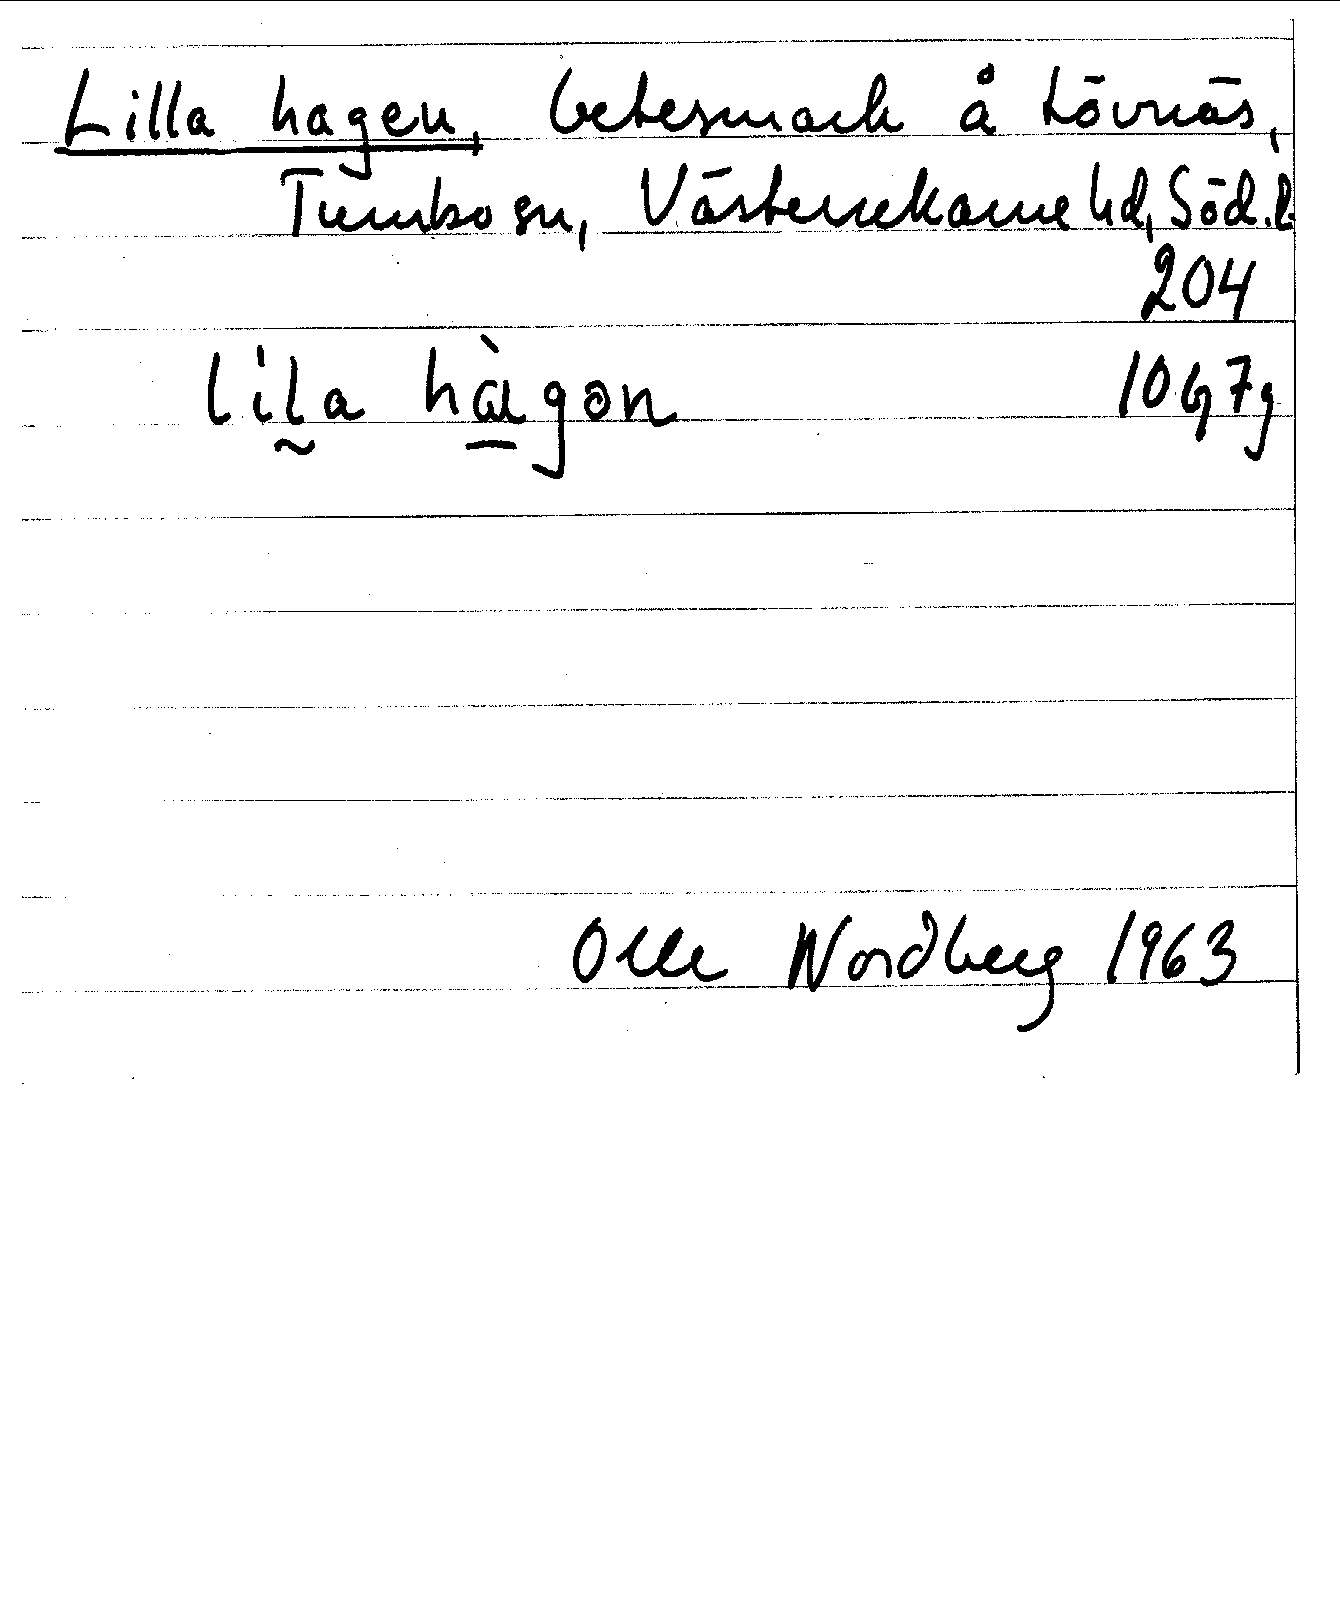 Lilla hagen, betesmark å Lövnäs,
Tumbo sn, Västerrekarne hd, Söd. l.
204
lila hàgon
10G7g
Olle Nordberg 1963